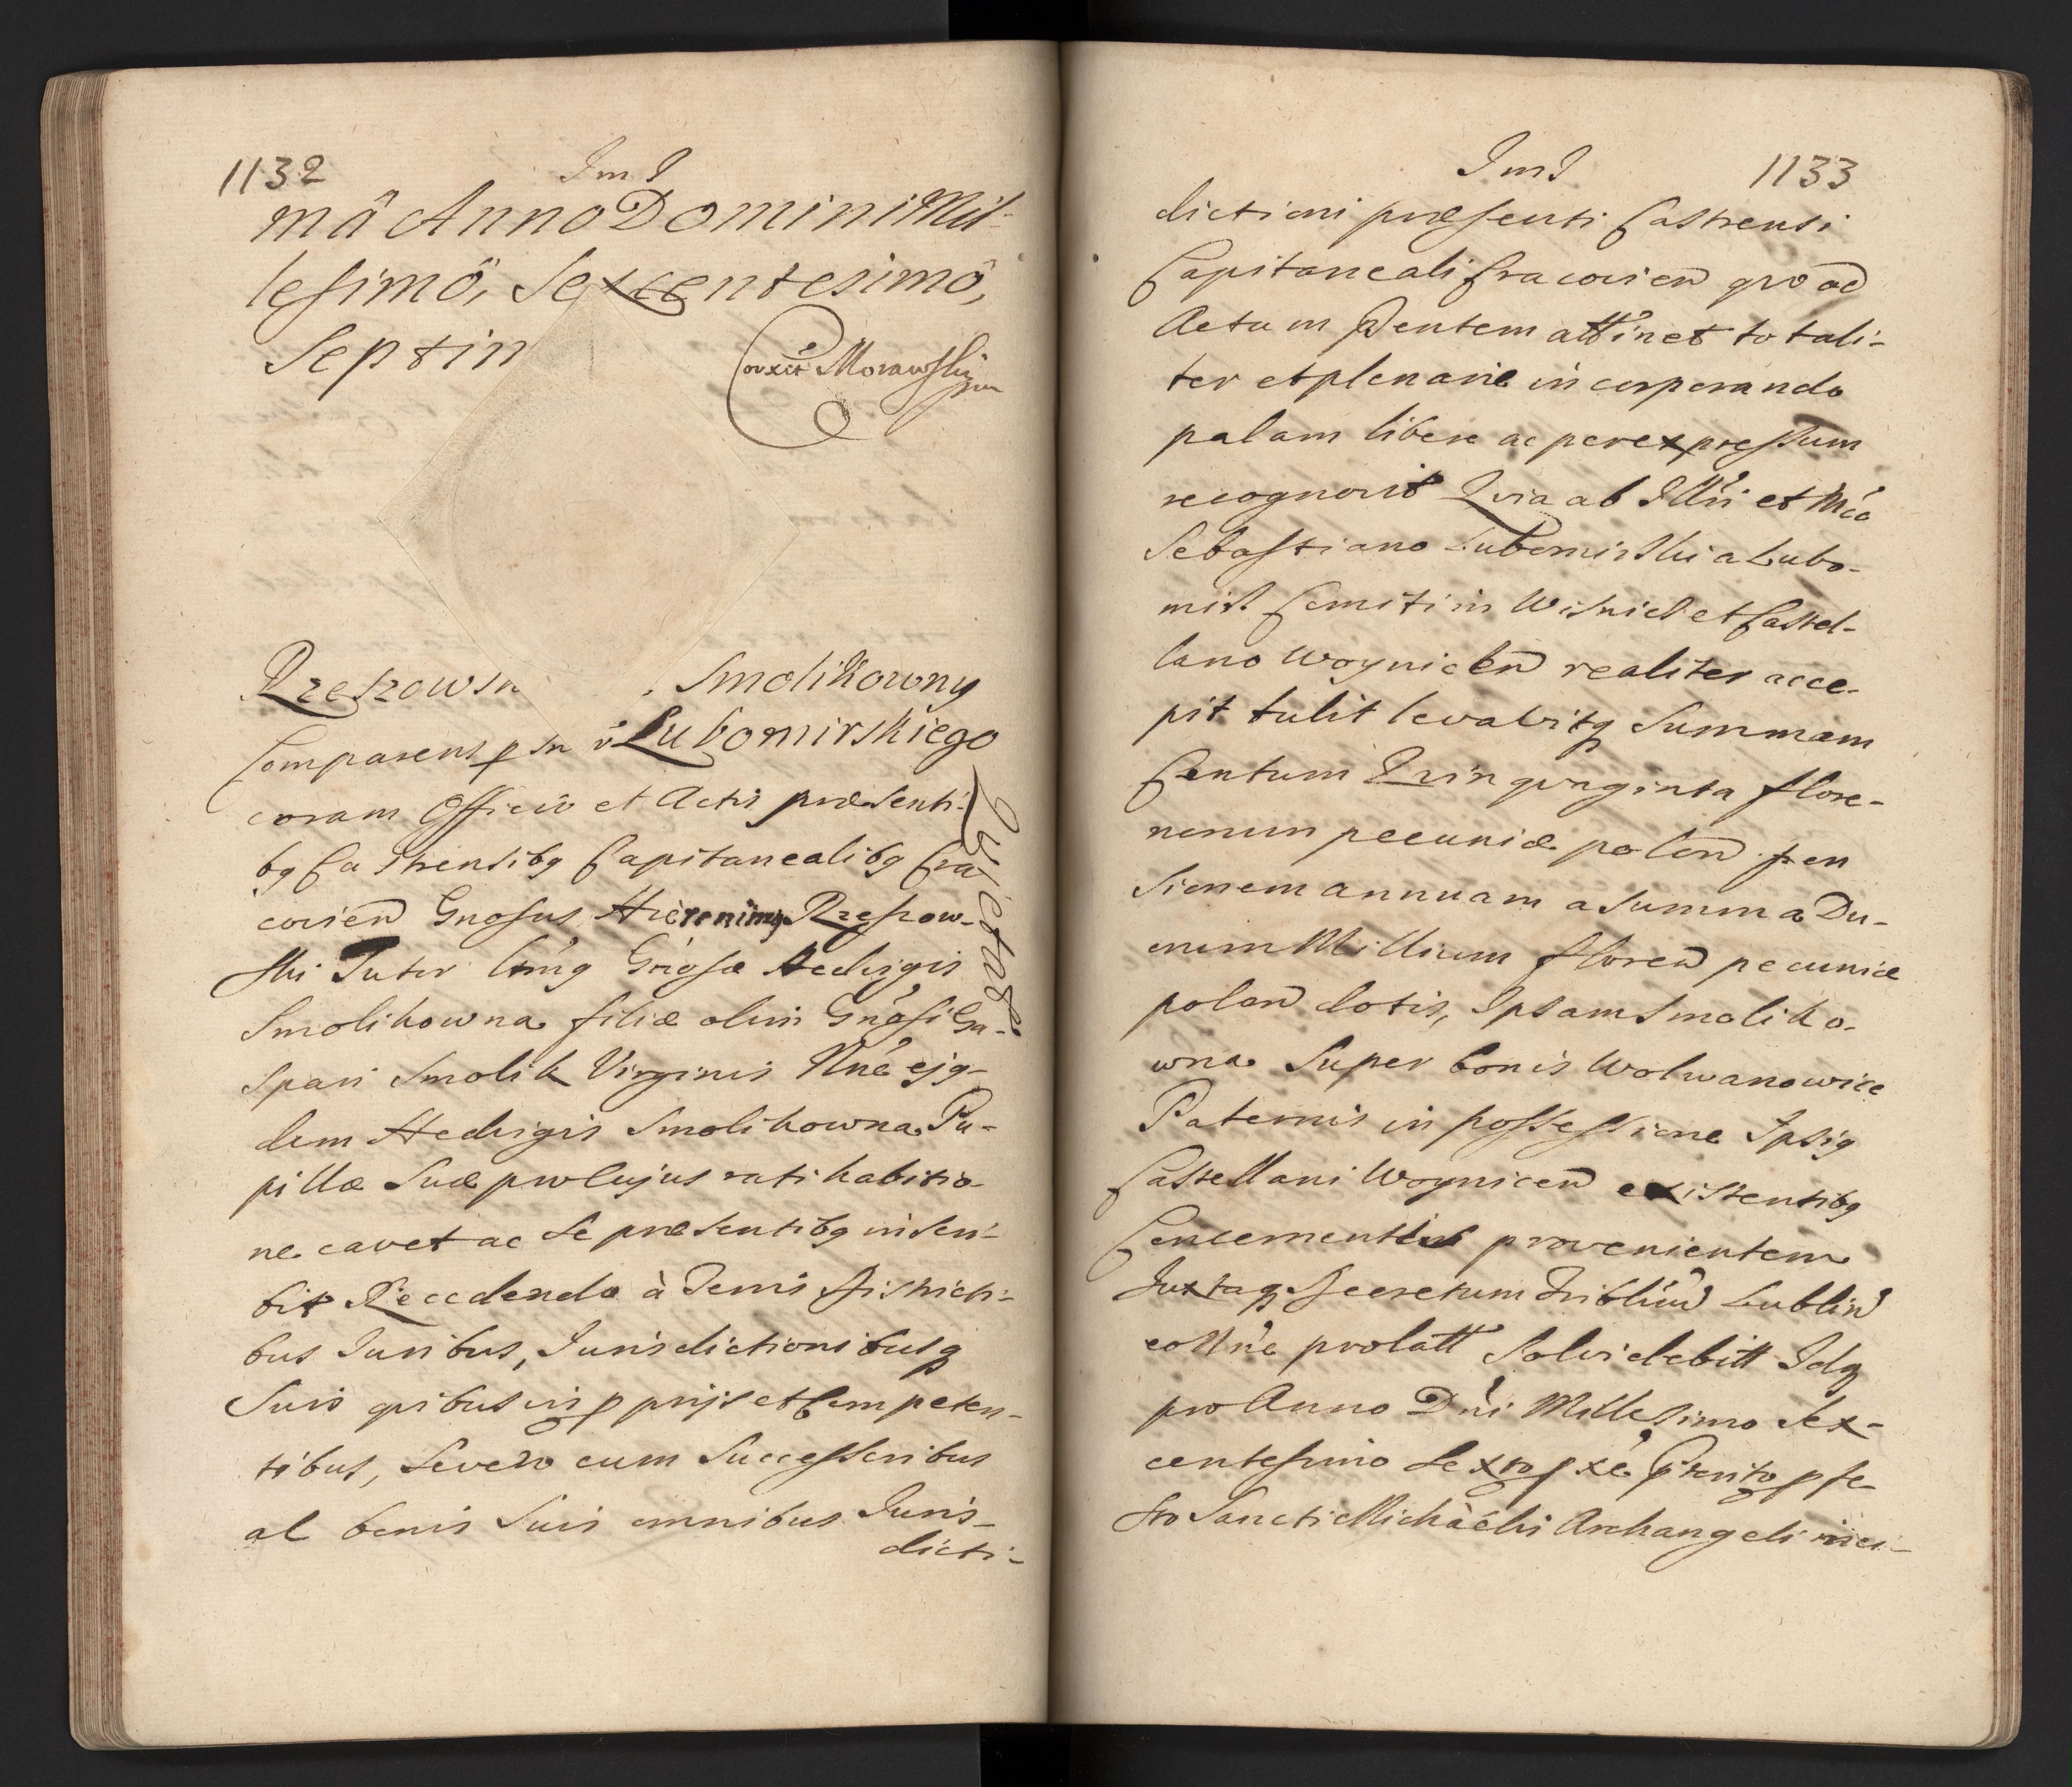 1132
ImI
mâ Anno Domini Mil-
lesimô, Sexcentesimô,
Septim
Corxit Morawski
Rzeszowsk Smolikowny
Lubomirskiego
Quietat
Comparens p sn
coram Officio et Actis præsenti-
bq Castrensibq Capitanealibq Cra
covien Gnosus Hieronimq Rzeszow-
ski Tutor Gnosæ Hedvigis
Smolikowna filiæ olim Gnosi Ga-
spari Smolik Virginis Nne ejq-
dem Hedvigis Smolikowna Pu-
pillæ Suæ pro Cujus ratihabitio-
ne cavet ac Se præsentibq inscri-
bit Recedendo à Terris Districti-
bus Juribus, Jurisdictionibusq
Suis quibusvis pprijs et Competen-
tibus, Severo cum Successoribus
ac bonis Suis omnibus Juris-
dicti-
ImI
1133
dictioni præsenti Castrensi
Capitaneali Cracovien quo ad
Actum Pntem attinet totali-
ter et plenarie incorporando
palam libere ac per expressum
recognovit Quia ab Illri et Mco
Sebastiano Lubomirski a Lubo-
mirz Comiti in Wisnicz et Castel-
lano Woynicen realiter acce-
pit tulit levavitq Summam
Centum Quinquaginta flore-
norum pecuniæ polon pen
sionem annuam a Summa Du-
orum Millium floren pecuniæ
polon dotis, Ipsam Smoliko-
wna Super bonis Wolwanowice
Paternis in possessione Ipsiq
Castellani Woynicen existentibq
Concernentem provenientem
Juxtaq Decretum Triblnu Lublin
eo Nne prolatt Solvi debitt Idq
pro Anno Dni Millesimo Sex-
centesimo Sexto pxe Pterito p fe
sto Sancti Michaëlis Archangeli inci-